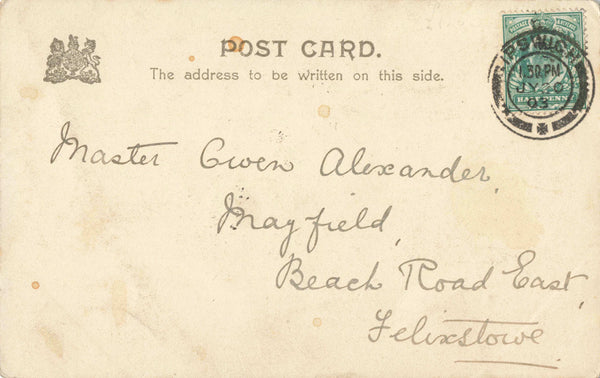 POST CARD.
The address to be written on this side.
IPSWICH
1.30 PM
JY 20
03
HALFPENNY
Master Owen Alexander,
Mayfield,
Beach Road East,
Felixstowe.